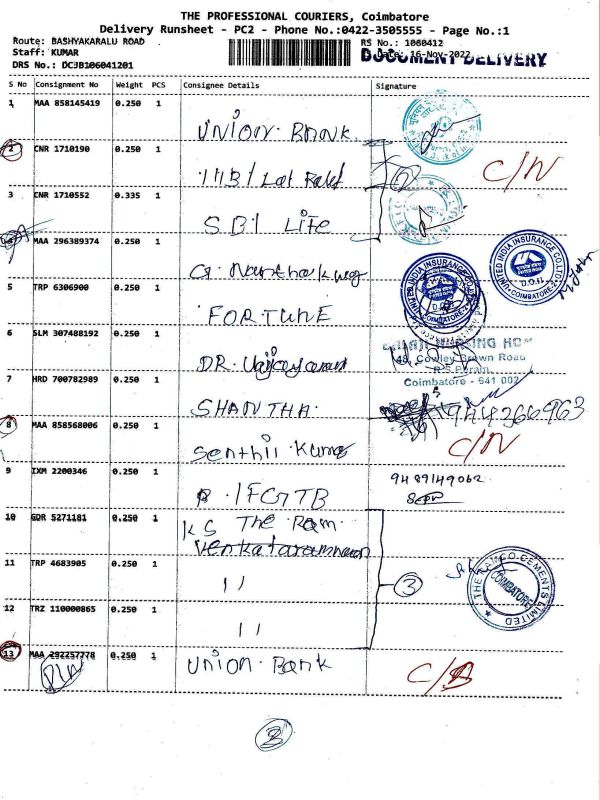 THE PROFESSIONAL COURIERS, Coimbatore
Delivery Runsheet - PC2 - Phone No.:0422-3505555 - Page No.:1
Route: BASHYAKARALU ROAD
Staff: KUMAR
DRS No.: DC3B106041201
RS No.: 1060412
Date: 16-Nov-2022
DOCUMENT DELIVERY
S No Consignment No Weight PCS Consignee Details Signature
1 MAA 858145419 0.250 1
UNION. BANK.
2 CNR 1710190 0.250 1
C/N
3 CNR 1710552 0.335 1
SBI LIFE
4 MAA 296389374 0.250 1
UNITED INDIA INSURANCE CO.LTD
COIMBATORE
UNITED INDIA INSURANCE CO.LTD
COIMBATORE
5 TRP 6306900 0.250 1
FORTUNE
6 SLM 307488192 0.250 1
DR.
48, Cowley Brown Road
R S Puram
Coimbatore - 641 002
7 HRD 700782989 0.250 1
SHANTHA.
9442666963
8 MAA 858568006 0.250 1
Senthil Kumar
C/N
9 IXM 2200346 0.250 1
IFGTB
9489149062
10 GDR 5271181 0.250 1
KS The Ram.
Venkataramanan
11 TRP 4683905 0.250 1
11
3
THE RAMCO CEMENTS LIMITED
COIMBATORE
12 TRZ 110000865 0.250 1
11
13 MAA 292257778 0.250 1
UNION. Bank